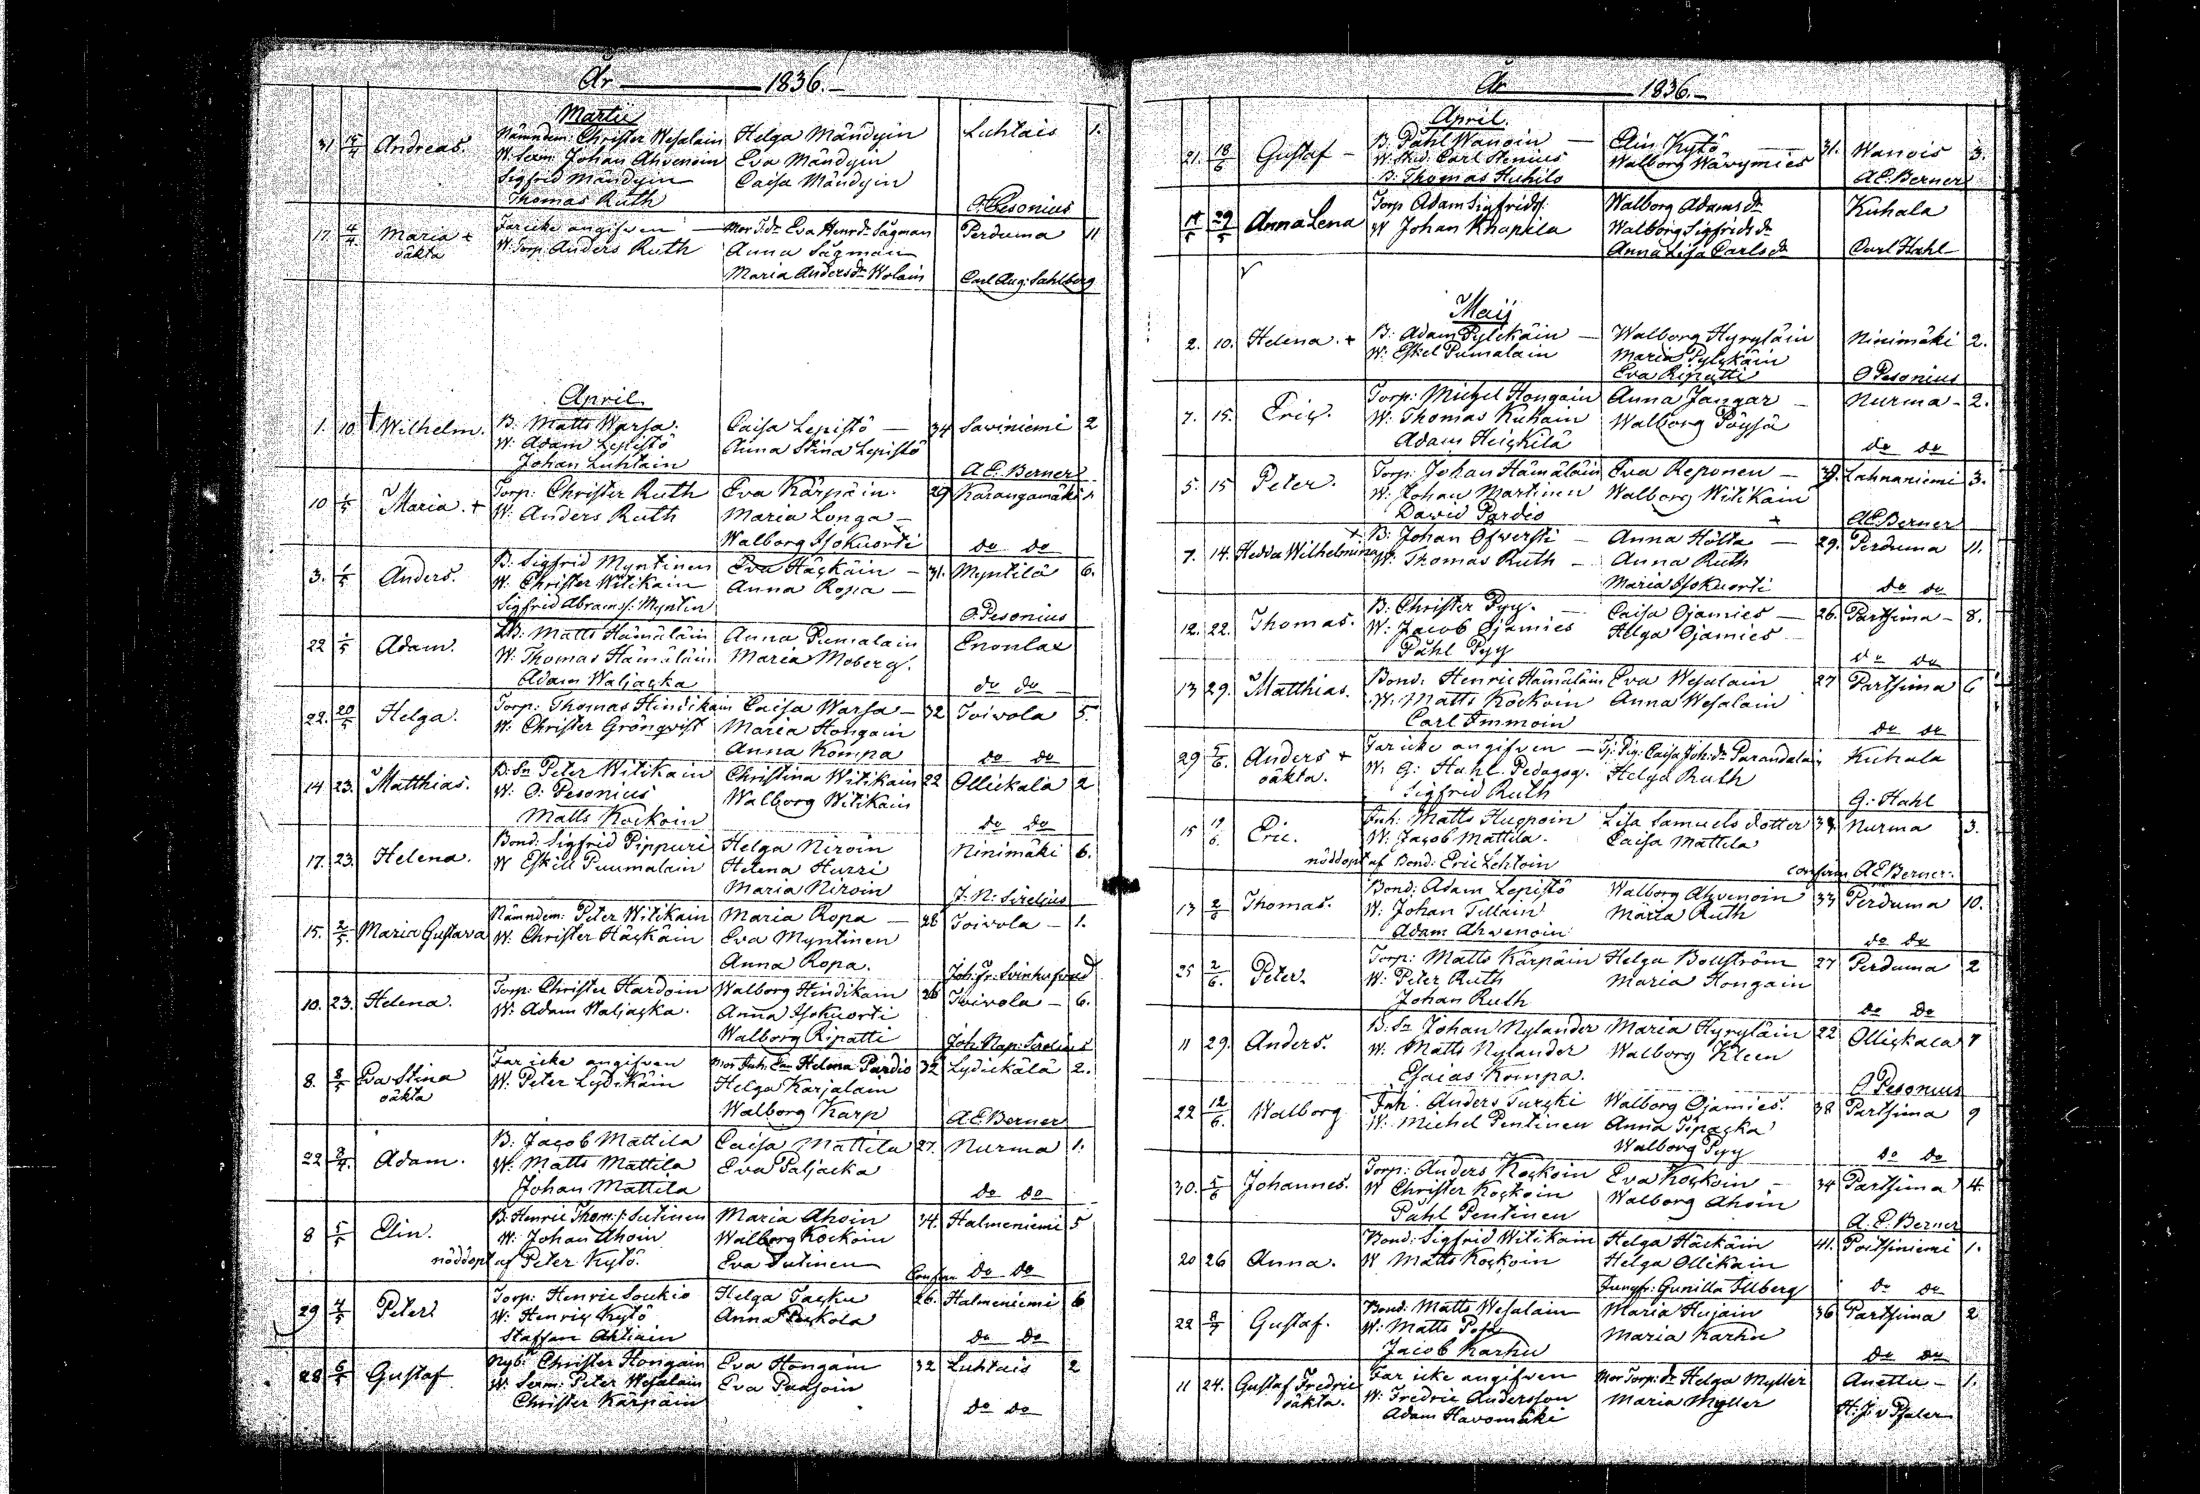 År 1836.
Martii
31 15/4 Andreas. Nämndem: Christer Wesalain Helga Mändyin Luhtais 1.
W. Sexm: Johan Ahvenoin Eva Mändyin
Sigfrid Mändyin Caisa Mändyin
Thomas Ruth O Pesonius
17. 4/4 Maria + Far icke angifven — Mor J:dr Eva Henrd:r Sägman Perduma 11
oäkta W. Torp. Anders Ruth Anna Sägman
Maria Andersdr Wolain Carl Aug: Sahlberg
April.
1. 10. † Wilhelm. B: Matts Warsa. Caisa Lepistö — 34 Saviniemi 2
W: Adam Lepistö Anna Stina Lepistö
Johan Luhtain A. E. Berner
10 1/5 Maria. + Torp: Christer Ruth Eva Kärpäin. 29 Karangamäki 1.
W: Anders Ruth Maria Longa —
Walborg Isokuorti do do
3. 1/5 Anders. B: Sigfrid Myntinen Eva Häckäin — 31. Myntilä 6.
W: Christer Witikain Anna Ropa —
Sigfrid Abrams: Myntin O. Pesonius
22 1/5 Adam. B: Matts Hämäläin Anna Pumalain Enonlax
W: Thomas Hämäläin Maria Moberg.
Adam Waljacka do do
22. 20/5 Helga. Torp: Thomas Hindikain Caisa Warsa — 32 Toivola 5.
W: Christer Grönqvist Maria Hongain
Anna Kompa do do
14 23. Matthias. B: Sn Peter Witikain Christina Witikain 22 Ollickala 2
W: O: Pesonius Walborg Witikain
Matts Kockoin do do
17. 23. Helena. Bond: Sigfrid Pippuri Helga Niroin Ninimäki 6.
W Eskill Puumalain Helena Hurri
Maria Niroin J: N: Sirelius
15. 2/5. Maria Gustava Nämndem: Peter Witikain Maria Ropa — 28 Toivola — 1.
W: Christer Häckäin Eva Myntinen
Anna Ropa. Joh: Fr: Svinhufvud
10. 23. Helena. Torp: Christer Hardoin Walborg Hindikain 26 Toivola — 6.
W: Adam Waljacka. Anna Isokuorti
Walborg Ripatti Joh: Nap: Sirelius
8. 8/5 Eva Stina Far icke angifven Mor Inh: En Helena Pardio 32 Lydickälä 2.
oäkta W. Peter Lydikäin Helga Karjalain
Walborg Karp A E Berner
22 3/4. Adam. B: Jacob Mattila Caisa Mattila 27. Nurma 1.
W: Matts Mattila Eva Paljacka
Johan Mattila do do
8 5/5 Elin. B: Henric Thom:s: Sutinen Maria Ahoin 34. Halmeniemi 5
W: Johan Ahoin Walborg Kockoin
nöddopt af Peter Kytö. Eva Sutinen Confirm do do
29 4/5 Peter. Torp: Henric Soukio Helga Tacku 26. Halmeniemi 6
W: Henric Kytö Anna Peckola
Staffan Ahtiain do do
28 6/5 Gustaf Nyb: Christer Hongain Eva Hongain 32 Luhtais 2
W. Sexm: Peter Wesalain Eva Paasoin
Christer Kärpäin do do
År 1836.
April.
21. 18/5 Gustaf — B: Påhl Wanoin — Elin Kytö — 31. Wanois 3.
W. Stud. Carl Stenius Walborg Wävymies
B: Thomas Huhilo A E. Berner
14/5 29/5 Anna Lena Torp Adam Sigfridss: Walborg Adamsdr Kuhala
W Johan Knapila Walborg Sigfridsdr
Anna Lisa Carlsdr Carl Hahl
Maij
2. 10. Helena. + B: Adam Pylckäin — Walborg Hyryläin Ninimäki 2.
W: Eskel Pumalain Maria Pylckäin
Eva Ripatti O Pesonius
7. 15. Eric. Torp: Michel Hongain Anna Jangar — Nurma — 2.
W: Thomas Kuhain Walborg Pöysä
Adam Heickilä do do
5. 15 Peter. Torp: Johan Hämäläin Eva Reponen — 39. Lahnaniemi 3.
W: Johan Martinen Walborg Witikain
David Pardio A E Berner
7. 14. Hedda Wilhelmina B: Johan Ofwersti — Anna Hölta — 29. Perduma 11.
W: Thomas Ruth — Anna Ruth
Maria Isokuorti do do
12. 22. Thomas. B: Christer Pyy. — Caisa Ojamies — 26. Partsima — 8.
W: Jacob Ojamies Helga Ojamies
Påhl Pyy do do
13 29. Matthias. Bond: Henric Hämäläin Eva Wesalain 27 Partsima 6
W: Matts Kockoin Anna Wesalain
Carl Immoin do do
29 5/6. Anders + Far icke angifven — Tj: Pig: Caisa Joh:dr Parandalain Kuhala
oäkta. W: G: Hahl Pedagog. Helga Ruth
Sigfrid Ruth G: Hahl
15 19/6. Eric. Inh: Matts Hugoin Lisa Samuels dotter 33. Nurma 3.
W: Jacob Mattila. Caisa Mattila
nöddopt af Bond: Eric Lehtoin confirm A E Berner.
13 2/6 Thomas. Bond: Adam Lepistö Walborg Ahvenoin 33 Perduma 10.
W: Johan Tillain Märta Ruth
Adam Ahvenoin do do
25 2/6. Peter. Torp: Matts Kärpäin Helga Bouström 27 Perduma 2
W: Peter Ruth Maria Hongain
Johan Ruth do do
11 29. Anders. B. Sn Johan Nylander Maria Hyryläin 22 Ollickala 7
W: Matts Nylander Walborg Kleen
Esaias Kompa. O Pesonius
22 12/6. Walborg Inh. Anders Turcki Walborg Ojamies. 38 Partsima 9
W: Michel Pentinen Anna Tipacka
Walborg Pyy do do
30. 5/6 Johannes. Torp: Anders Kockoin Eva Kockoin — 34 Partsima 4.
W Christer Kockoin Walborg Ahoin
Påhl Pentinen A. E. Berner
20 26 Anna. Bond: Sigfrid Witikain Helga Häckäin 41. Poitsiniemi 1.
W Matts Kockoin Helga Ollikain
Jungfr: Gunilla Illberg do do
22 3/7 Gustaf. Bond: Matts Wesalain Maria Hujain 36 Partsima 2
W: Matts Maria Karhu
Jacob Karhu do do
11 24. Gustaf Fredric Far icke angifven Mor Torp:dr Helga Myller Anettu — 1.
oäkta. W: Fredric Andersson Maria Myller
Adam Havomäki